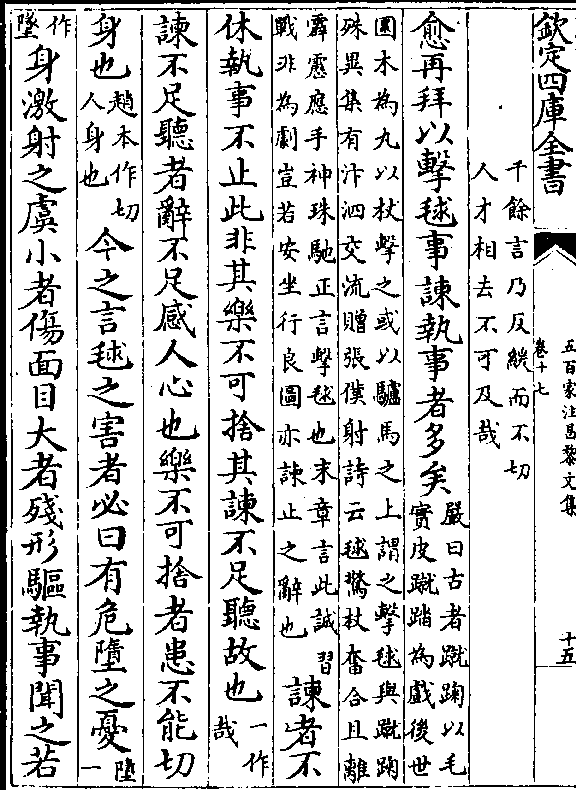 欽定四庫全書
五百家注昌黎文集
卷十七
十五
千餘言乃反緩而不切
人才相去不可及哉
愈再拜以擊毬事諫執事者多矣
嚴曰古者蹴踘以毛
實皮蹴踏為戲後世
圓木為丸以杖擊之或以驢馬之上謂之擊毬與蹴踘
殊異集有汴泗交流贈張僕射詩云毬驚杖奮合且離
霹靂應手神珠馳正言擊毬也末章言此誠習
戰非為劇豈若安坐行良圖亦諫止之辭也
諫者不
休執事不止此非其樂不可捨其諫不足聽故也
一作
哉
諫不足聽者辭不足感人心也樂不可捨者患不能切
身也
趙本作切
人身也
今之言毬之害者必曰有危墮之憂
墮
一
作
墜
身激射之虞小者傷面目大者殘形軀執事聞之若